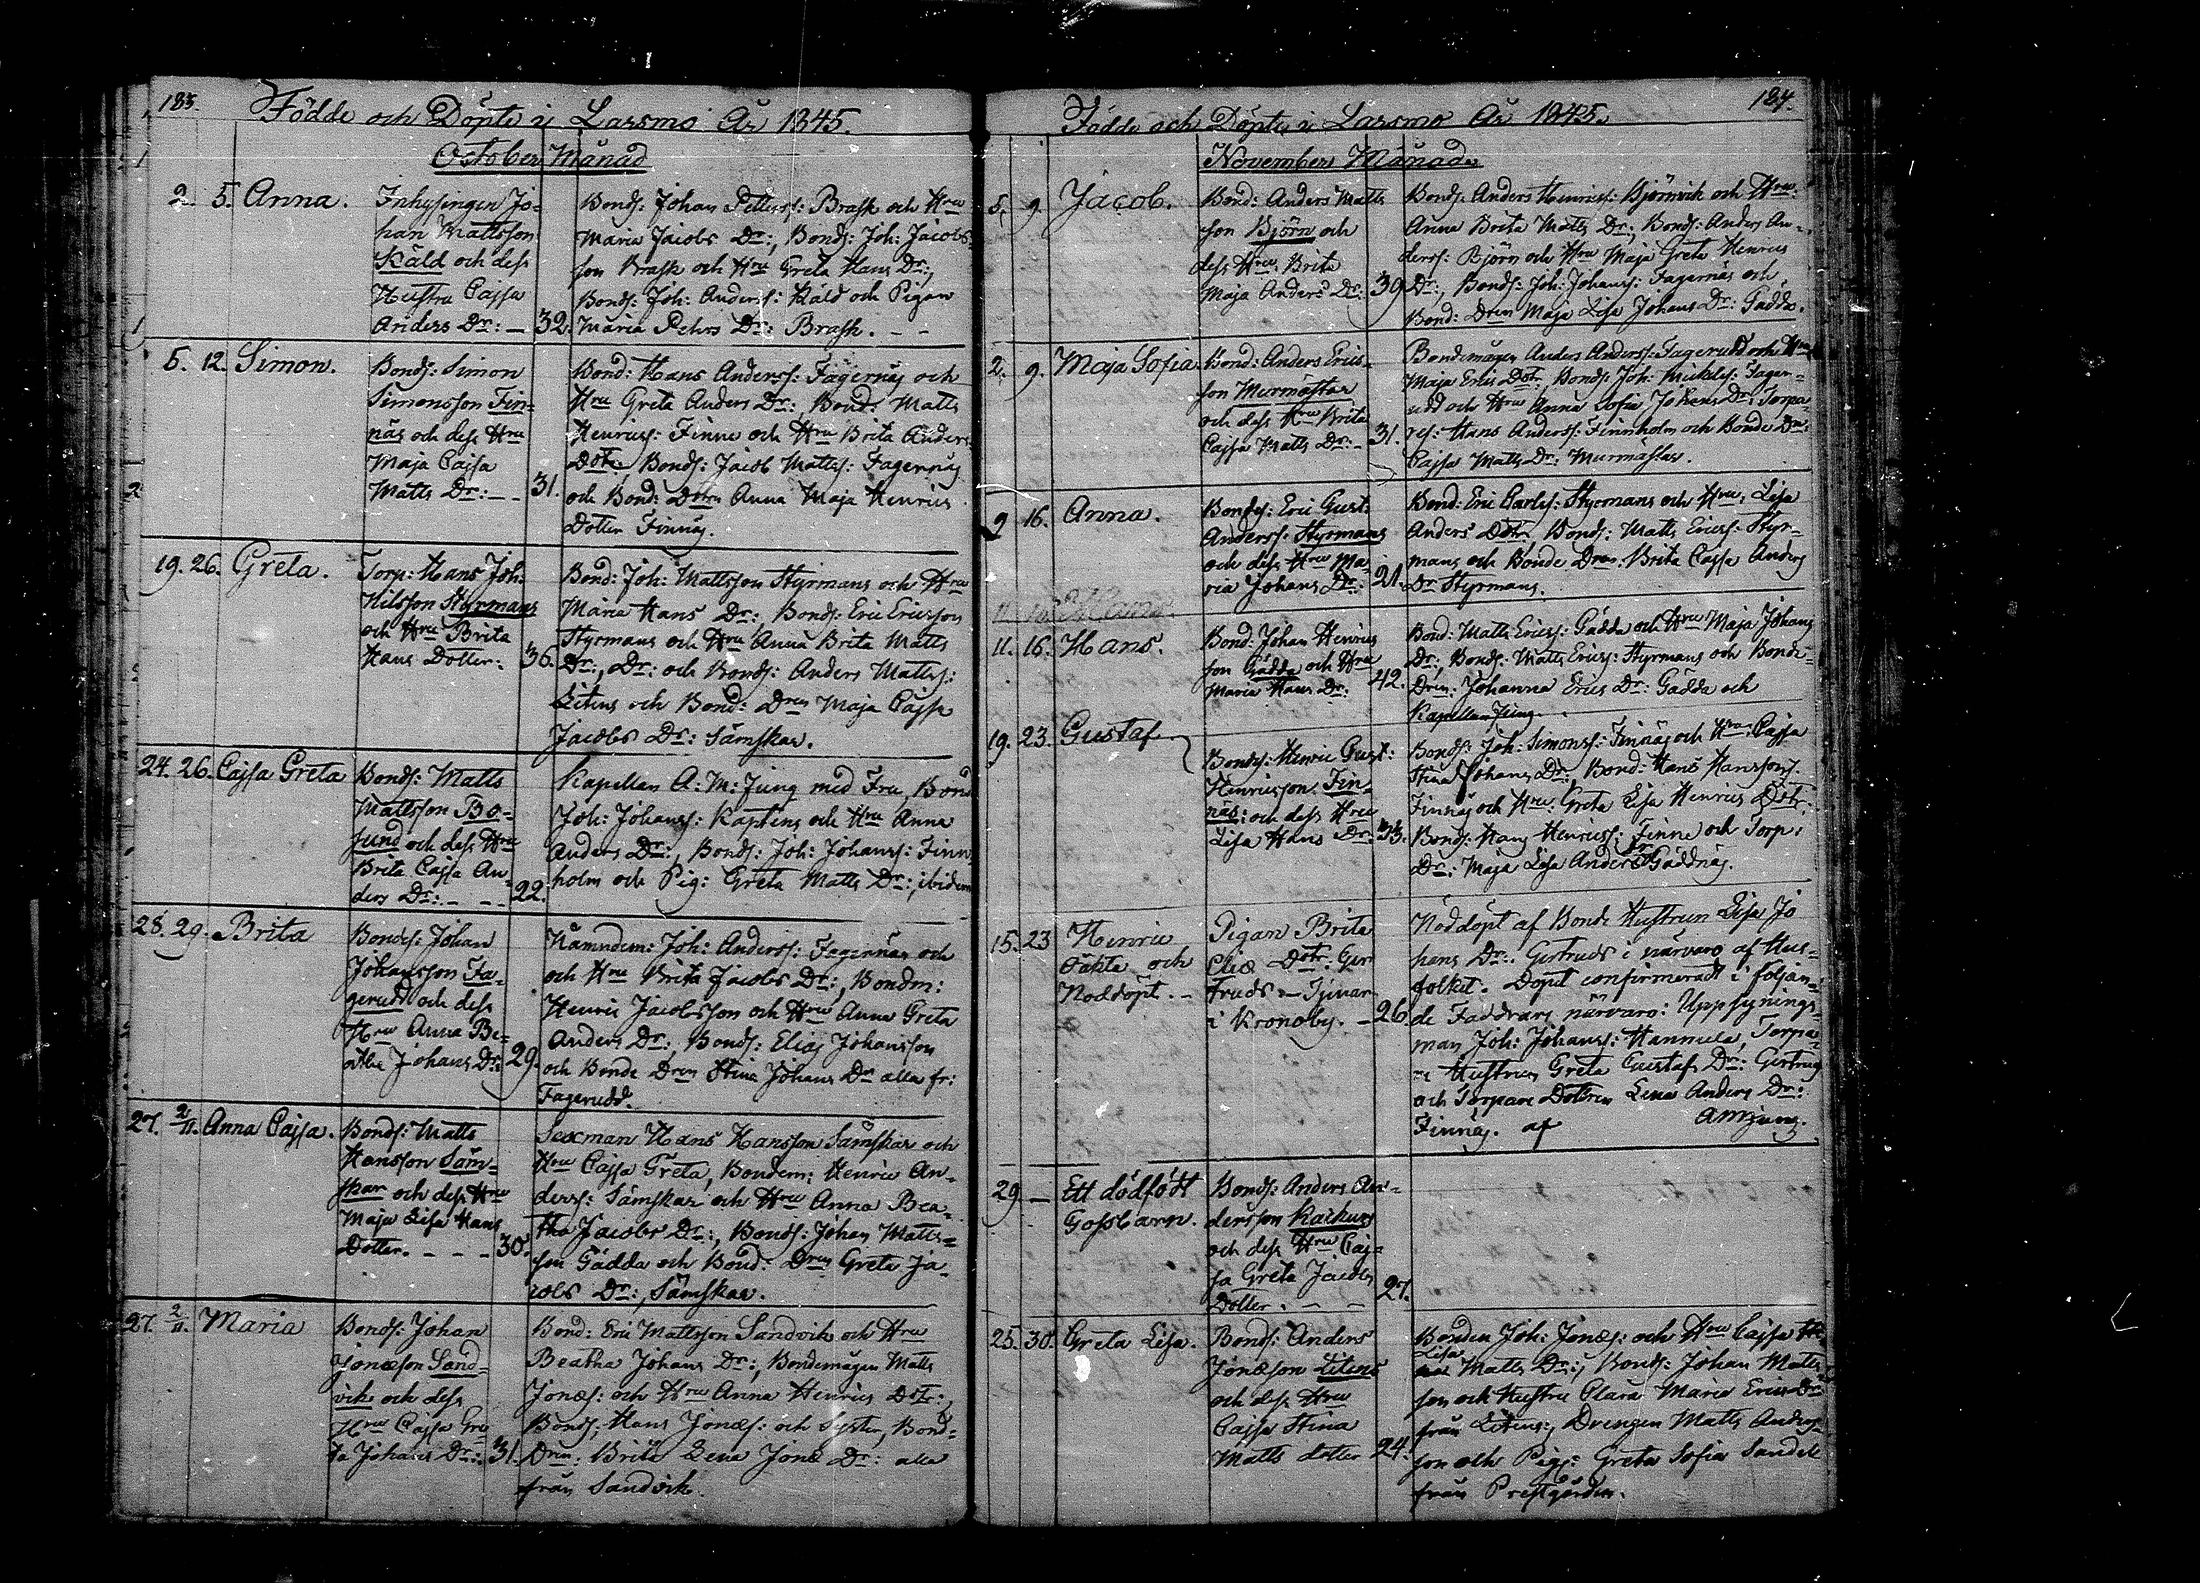 183.
Födde och Döpte i Larsmo År 1845.
October Månad
2. 5. Anna.
Inhysingen Jo-
han Mattsson
Käld och dess
Hustru Cajsa
Anders Dr: — 32.
Bonds: Johan Petterss: Brask och Hru
Maria Jacobs Dr:, Bonds: Joh: Jacobs-
son Brask och Hru Greta Hans Dr:,
Bonds: Joh: Anderss: Käld och Pigan
Maria Pehrs Dr: Brask. — —
5. 12. Simon.
Bonds: Simon
Simonsson Fin-
näs och dess Hru
Maja Cajsa
Matts Dr: — - 31.
Bond: Hans Anderss: Fagernäs och
Hru Greta Anders Dr:, Bond: Matts
Henricss: Finne och Hru Brita Anders
Dotr, Bonds: Jacob Mattss: Fagernäs
och Bond: Dotrn Anna Maja Henrics
Dotter Finnäs.
19. 26. Greta.
Torp: Hans Joh:
Nilsson Styrmans
och Hru Brita
Hans Dotter: 36.
Bond: Joh: Mattsson Styrmans och Hru
Maria Hans Dr:, Bonds: Eric Ericsson
Styrmans och Hru Anna Brita Matts
Dr:, Dr: och Bonds: Anders Mattss:
Litens och Bond: Drn Maja Cajsa
Jacobs Dr: Sämskar.
24. 26. Cajsa Greta
Bonds: Matts
Mattsson Bo-
sund och dess Hru
Brita Cajsa An-
ders Dr: - - - 22.
Kapellan A: M: Jung med Fru, Bond
Joh: Johanss: Kaptens och Hru Anna
Anders Dr:, Bonds: Joh: Johanss: Finn-
holm och Pig: Greta Matts Dr:, ibidem
28. 29. Brita
Bonds: Johan
Johansson Fa-
gerudd och dess
Hru Anna Be-
atha Johans Dr: 29.
Nämndem: Joh: Anderss: Fagernäs och
och Hru Brita Jacobs Dr:, Bondm:
Henric Jacobsson och Hru Anna Greta
Anders Dr:, Bonds: Elias Johansson
och Bonde Drn Stina Johans Dr alla fr:
Fagerudd.
27. 2/11. Anna Cajsa.
Bonds: Matts
Hansson Säm-
skar och dess Hru
Maja Lisa Hans
Dotter. - - - 30.
Sexman Hans Hansson Sämskar och
Hru Cajsa Greta, Bondem: Henric An-
derss: Sämskar och Hru Anna Bea-
tha Jacobs Dr:, Bonds: Johan Matts-
son Gädda och Bond: Drn Greta Ja-
cobs Dr:, Sämskar.
27. 2/11. Maria
Bonds: Johan
Jonæson Sand-
vik och dess
Hru Cajsa Gre-
ta Johans Dr: 31.
Bond: Eric Mattsson Sandvik och Hru
Beatha Johans Dr:, Bondemågen Matts
Jonæs: och Hru Anna Henrics Dotr,
Bonds: Hans Jonæs: och Syster, Bond-
Drn: Brita Lena Jonæ Dr: alla
från Sandvik.
184.
Födde och Döpte i Larsmo År 1845.
November Månad
5. 9. Jacob.
Bond: Anders Matts
son Björn och
dess Hru Brita
Maja Anders Dr: 39.
Bonds: Anders Henricss: Björnvik och Hru:
Anna Brita Matts Dr:, Bonds: Anders An-
derss: Björn och Hru Maja Greta Henrics
Dr:, Bonds: Joh: Johanss: Fagernäs och
Bond: Drn Maja Lisa Johans Dr: Gädda.
2. 9. Maja Sofia
Bond: Anders Erics-
son Murmästar
och dess Hru Brita
Cajsa Matts Dr: - 31.
Bondemågen Anders Anderss: Fagerudd och Hru
Maja Erics Dotr, Bonds: Joh: Mickelss: Fager-
udd och Hru Anna Sofia Johans Dr, Torpa-
res: Hans Anderss: Finnholm och Bonde Dr:
Cajsa Matts Dr: Murmästar.
9 16. Anna.
Bonds: Eric Gust:
Anderss: Styrmans
och dess Hru Ma-
ria Johans Dr: 21.
Bond: Eric Carlss: Styrmans och Hru: Lisa
Anders Dotr, Bonds: Matts Ericss: Styr-
mans och Bonde Drn: Brita Cajsa Anders
Dr Styrmans.
11. 16. Hans.
Bond: Johan Henrics
son Gädda och Hru
Maria Hans Dr: 42.
Bond: Matts Ericss: Gädda och Hru Maja Johans
Dr:, Bonds: Matts Ericss: Styrmans och Bonde-
Drn: Johanna Erics Dr: Gädda och
Kapellan Jung.
19. 23. Gustaf
Bonds: Henric Gust:
Henricsson Fin-
näs: och dess Hru
Lisa Hans Dr: 33.
Bonds: Joh: Simonss: Finnäs och Hru: Cajsa
Stina Johans Dr:, Bond: Hans Hansson
Finnäs och Hru: Greta Lisa Henrics Dotr:
Bonds: Hans Henricss: Finne och Torp:
Dr: Maja Lisa Anders Dr Gäddnäs.
15. 23 Henric
Oäkta och
Nöddöpt. -
Pigan Brita
Eliæ Dotr: Ger
truds — Tjenar
i Kronoby. — 26.
Nöddöpt af Bonde Hustrun Lisa Jo
hans Dr: Gertruds i närvaro af Hus-
folket. Dopet confirmeradt i följan-
de Faddrars närvaro: Uppsynings-
man Joh: Johanss: Hannula, Torpa-
re Hustrun Greta Gustafs Dr: Gertruds
och Torpare Dottren Lena Anders Dr:
Finnäs. af AMJung.
29 — Ett dödfödt
Gossbarn.
Bonds: Anders An-
dersson Kackurs
och dess Hru Caj-
sa Greta Jacobs
Dotter. — — 27.
25. 30. Greta Lisa.
Bonds: Anders
Jonæson Litens
och dess Hru
Cajsa Stina
Matts dotter 24.
Bonden Joh: Jonæs: och Hru Cajsa
Lisa
Matts Dr:, Bonds: Johan Matts
son och Hustru Clara Maria Erics Dr
från Litens, Drengen Matts Anders-
son och Pigs: Greta Sofia Sandell
från Prestgården.